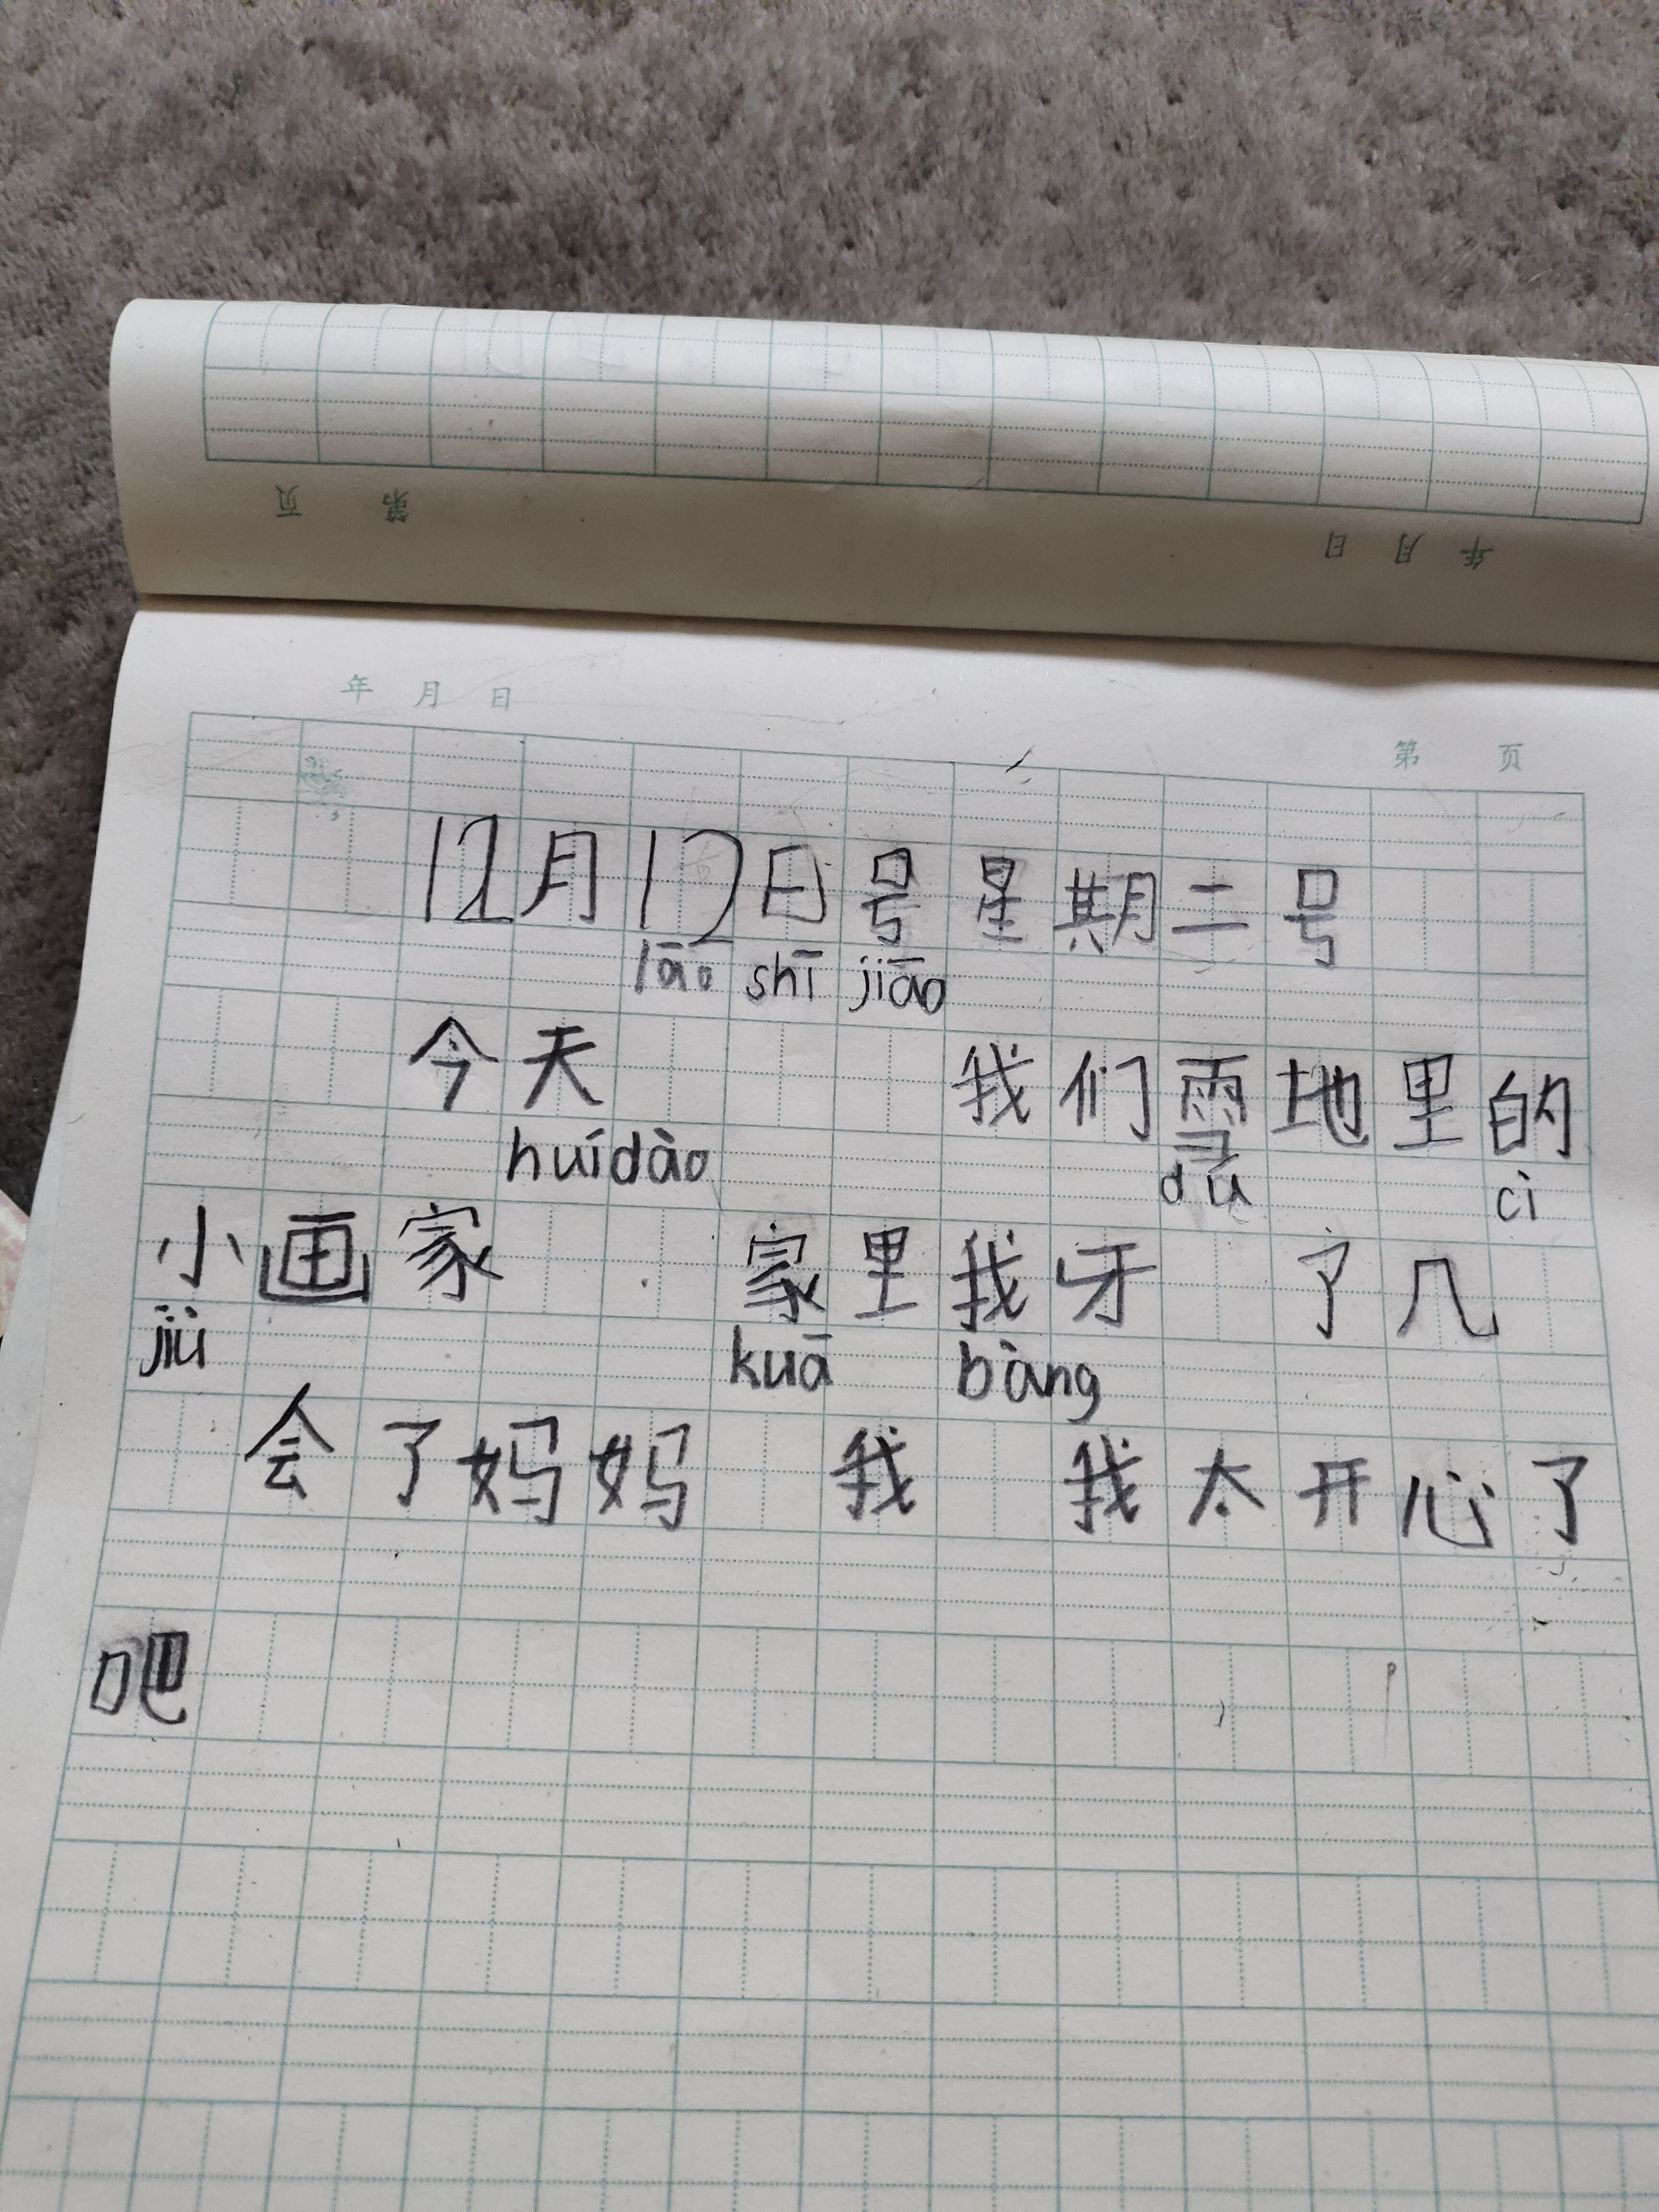 页 第
日 月 年
年 月 日
第 页
12月12日号星期二号
lāo shī jiāo
今天 我们雪地里的
huídào dú cì
小画家 家里我牙 了几
jiù kuā bàng
会了妈妈 我 我太开心了
吧